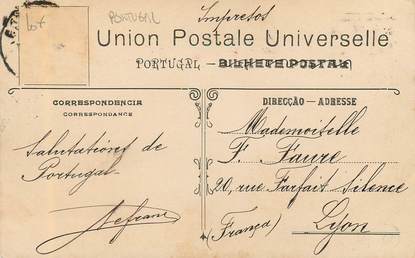 Impresos
PORTUGAL
Union Postale Universelle
PORTUGAL — BILHETE POSTAL
CORRESPONDENCIA
CORRESPONDANCE
DIRECÇÃO – ADRESSE
Salutations de
Portugal
Mademoiselle
F. Faure
20, rue Parfait Silence
Lyon
(França)